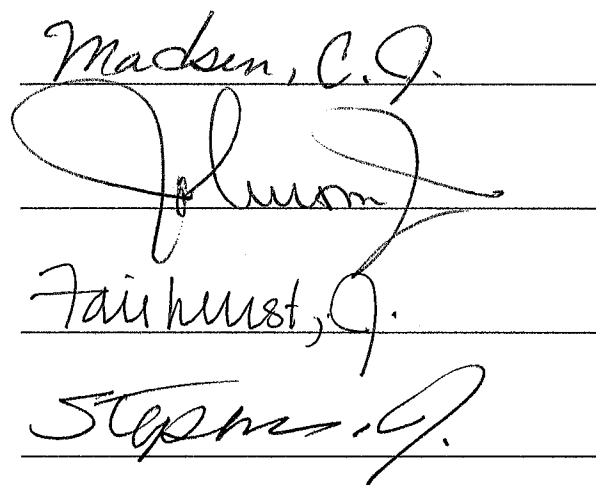 Madsen, C.J.
Johnson J
Fairhurst, J.
Stephens, J.